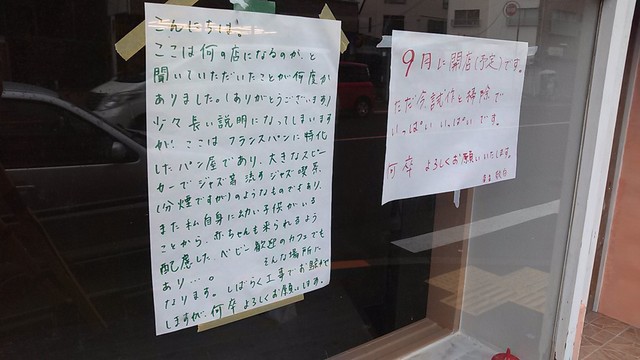 こんにちは。
ここは何の店になるのか、と
聞いていただいたことが何度か
ありました。(ありがとうございます)
少々長い説明になってしまいます
が、ここは フランスパンに特化
したパン屋であり、大きなスピー
カーでジャズを流すジャズ喫茶、
(分煙ですが)のようなものでもあり、
また私自身に幼い子供がいる
ことから、赤ちゃんも来られるよう
配慮した、ベビー歓迎のカフェでも
あり…。 そんな場所に
なります。しばらく工事でお騒がせ
しますが、何卒よろしくお願いします。
9月に開店(予定)です。
ただ今、試作と掃除で
いっぱい いっぱい です。
何卒 よろしくお願いいたします。